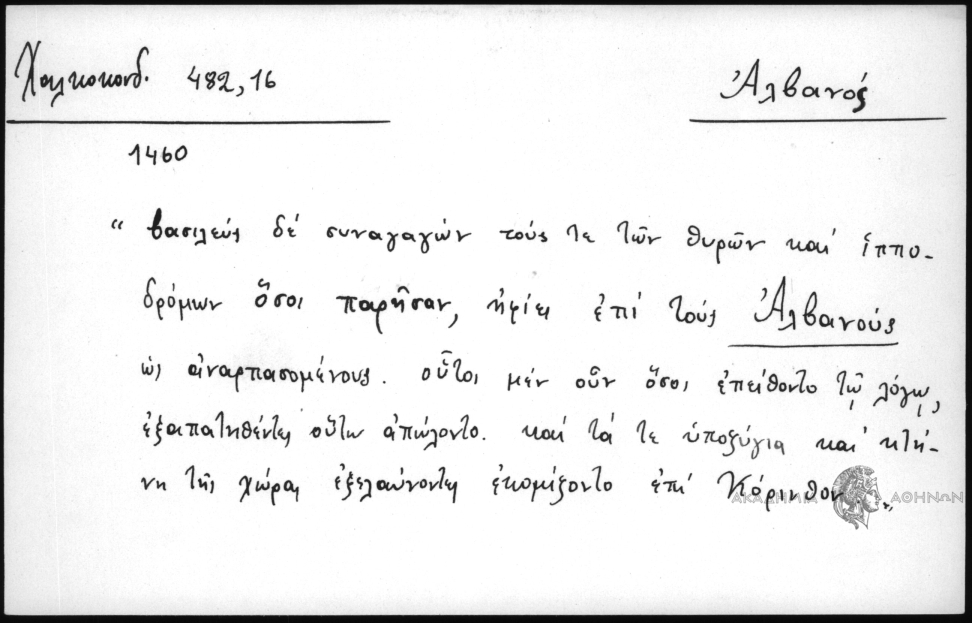 Χαλκοκονδ. 482,16
Ἀλβανός
1460
“ βασιλεύς δέ συναγαγών τούς τε τῶν θυρῶν καί ἱππο-
δρόμων ὅσοι παρῆσαν, ἠφίει ἐπί τούς Ἀλβανούς
ὡς ἀναρπασομένους. οὗτοι μέν οὖν ὅσοι ἐπείθοντο τῷ λόγῳ,
ἐξαπατηθέντες οὕτω ἀπώλοντο. καί τά τε ὑποζύγια καί κτή-
νη τῆς χώρας ἐξελαύνοντες ἐκομίζοντο ἐπί Κόρινθον „
ΑΚΑΔΗΜΙΑ ΑΘΗΝΩΝ